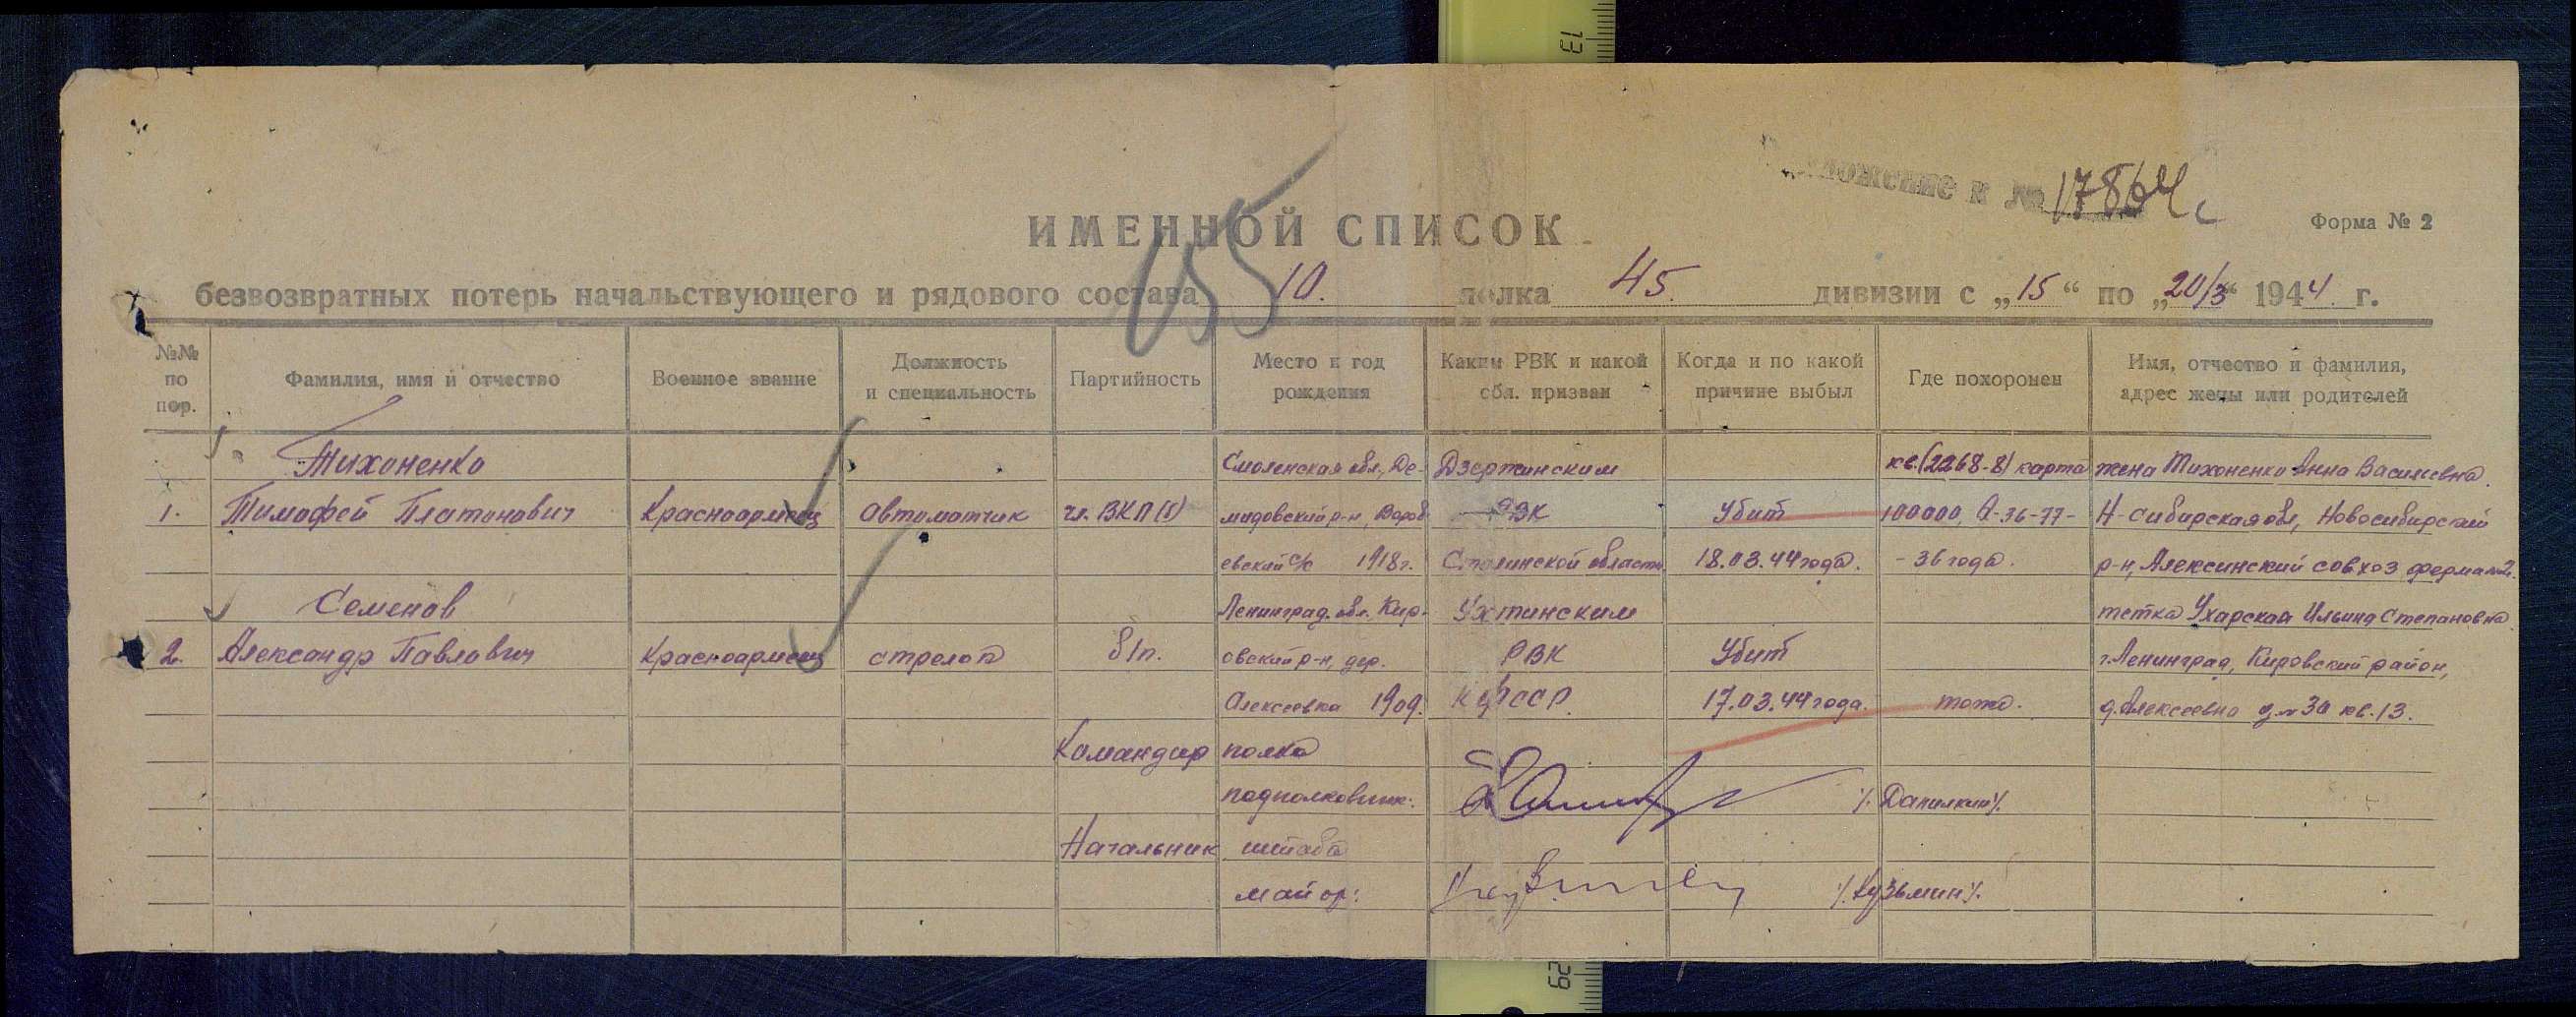 Приложение к № 17864с
ИМЕННОЙ СПИСОК
Форма № 2
155
безвозвратных потерь начальствующего и рядового состава 10. полка 45. дивизии с „15“ по „20/3“ 1944 г.
№№ по пор.
Фамилия, имя и отчество
Военное звание
Должность и специальность
Партийность
Место и год рождения
Каким РВК и какой обл. призван
Когда и по какой причине выбыл
Где похоронен
Имя, отчество и фамилия, адрес жены или родителей
Тихоненко Смоленская обл., Де- Дзержинским кв. (2268-8) карта жена Тихоненко Анна Васильевна.
1. Тимофей Платонович Красноармеец Автоматчик чл. ВКП(б) мидовский р-н, Вороб РВК Убит 100000, О-36-77- Н-Сибирская обл, Новосибирский
евский с/с 1918г. Сталинской области 18.03.44 года. - 36 года. р-н, Алексинский совхоз ферма №2.
Семенов Ленинград. обл. Кир- Ухтинским тетка Ухарская Ильина Степановна
2. Александр Павлович Красноармеец стрелок б/п. овский р-н, дер. РВК Убит г. Ленинград, Кировский район,
Алексеевка 1909. КФССР. 17.03.44 года. тоже. д. Алексеевка д. № 30 кв. 13.
Командир полка
подполковник: /Данилкин/.
Начальник штаба
майор: /Кузьмин/.
13
29